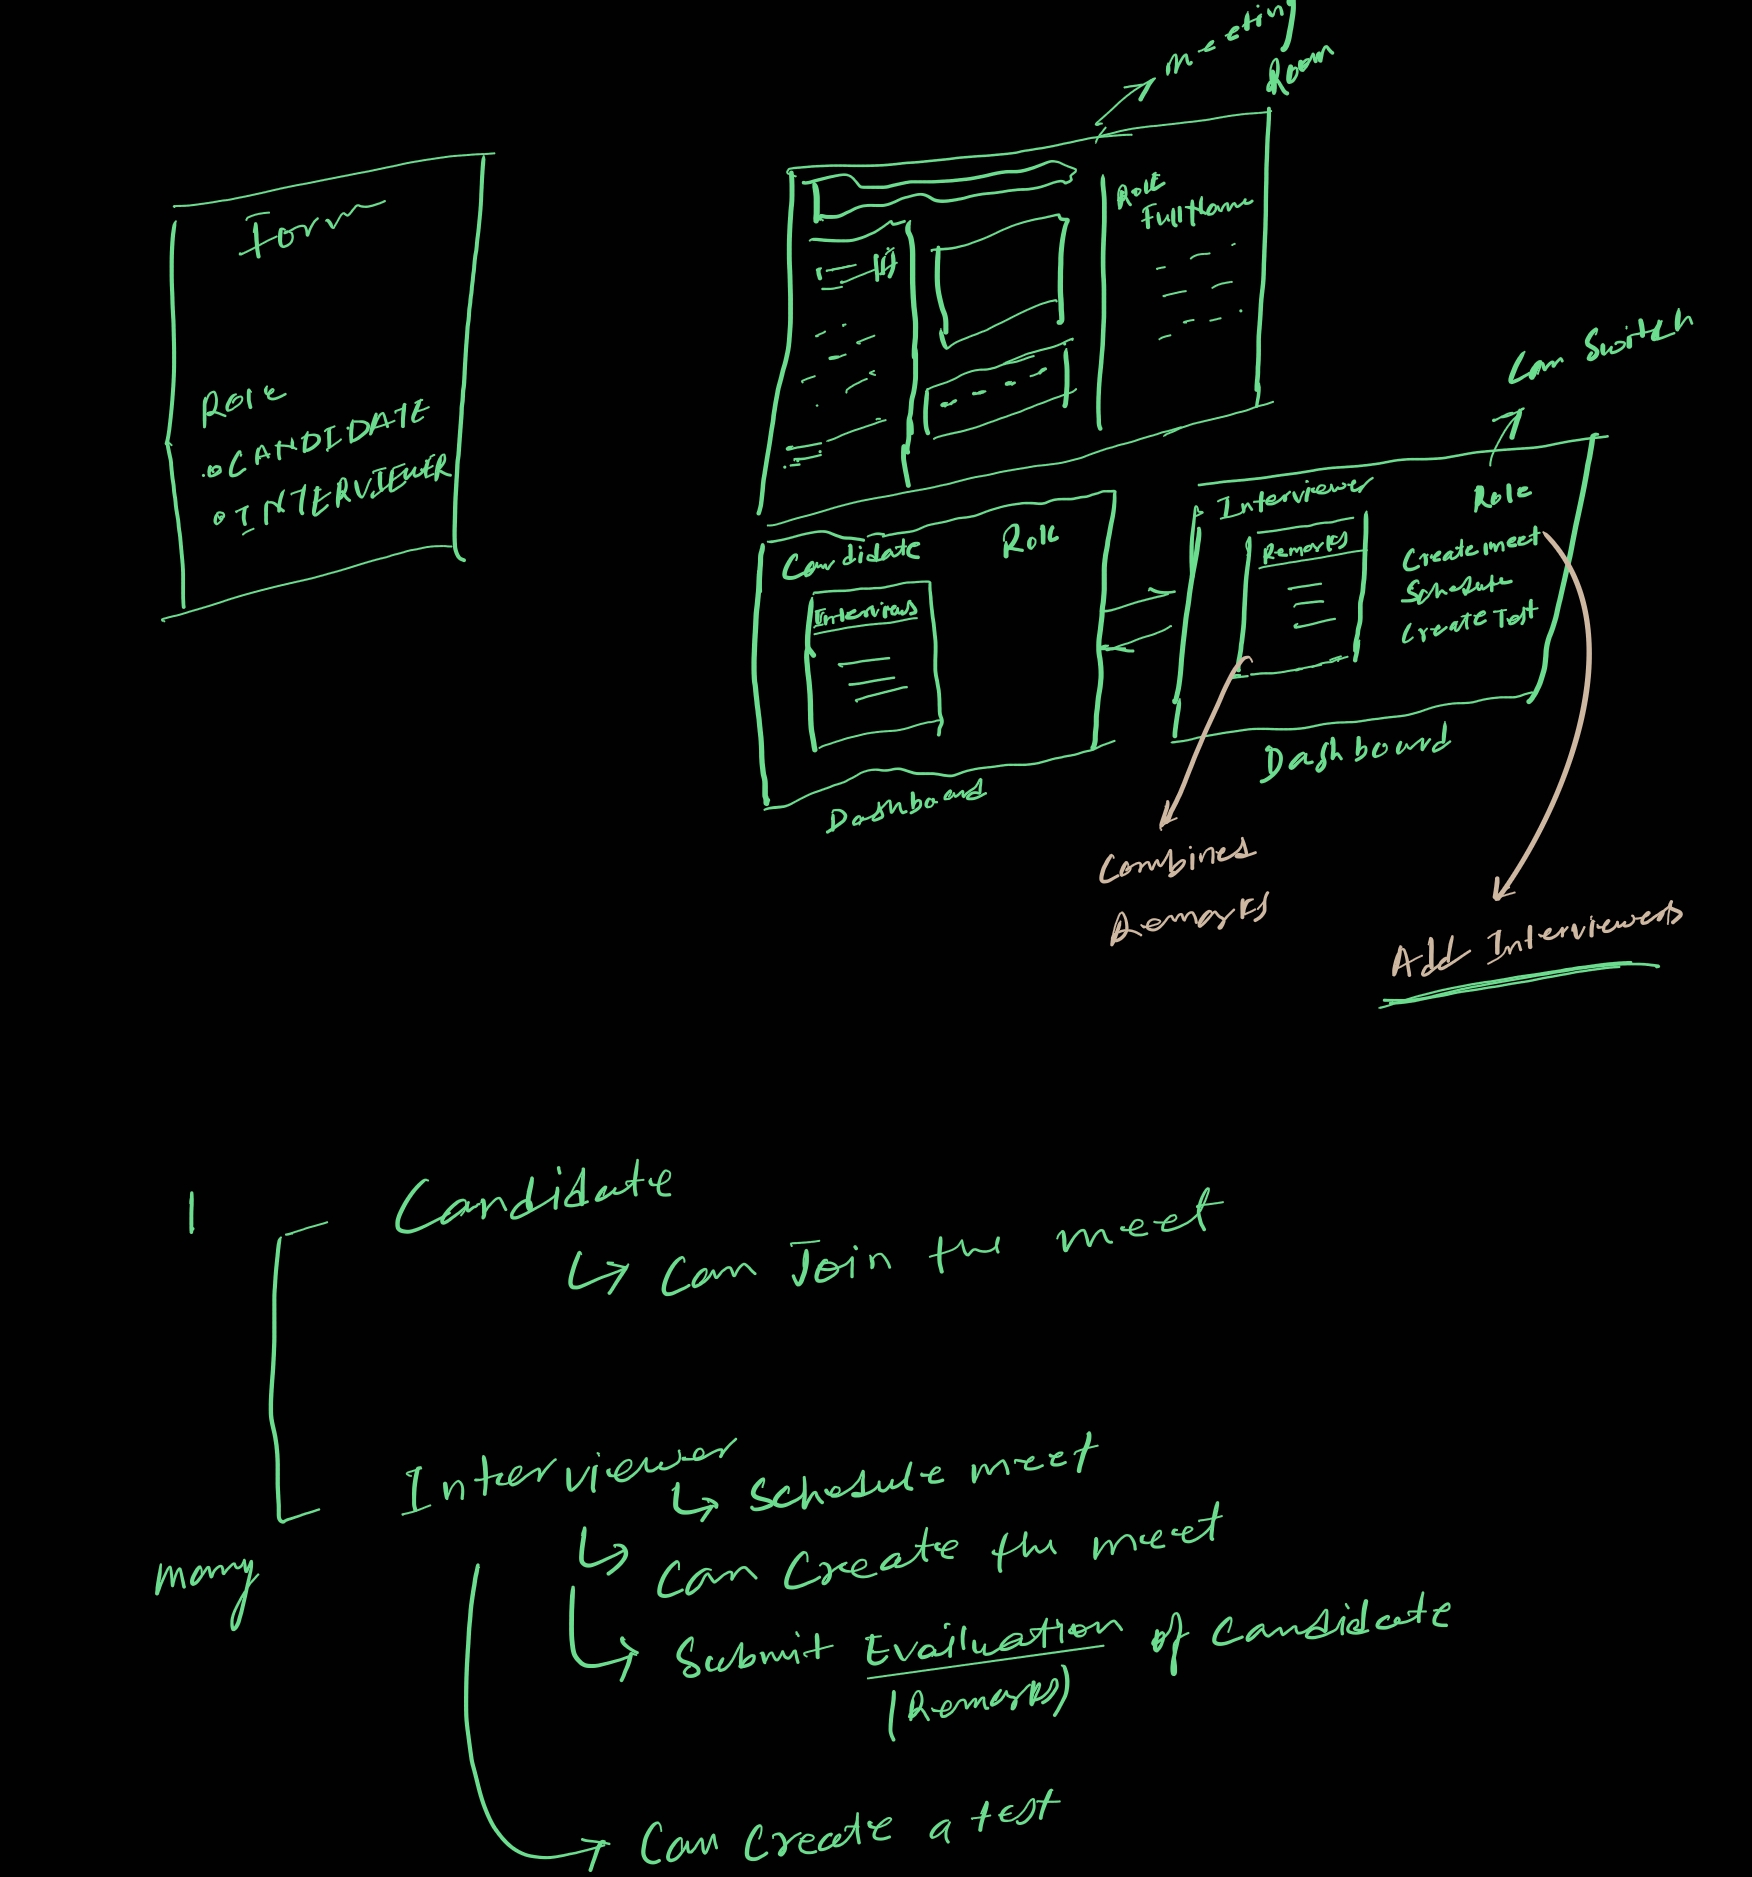 Form
Role
CANDIDATE
INTERVIEWER
meeting
Room
Role
FullName
Can Switch
Candidate
Role
Interviews
Dashboard
Interviewer
Role
Remarks
Create meet
Schedule
Create Test
Dashboard
Combines
Remarks
Add Interviewers
1
Candidate
Can Join the meet
many
Interviewer
Schedule meet
Can Create the meet
Submit Evailuation of Candidate
(Remarks)
Can Create a test